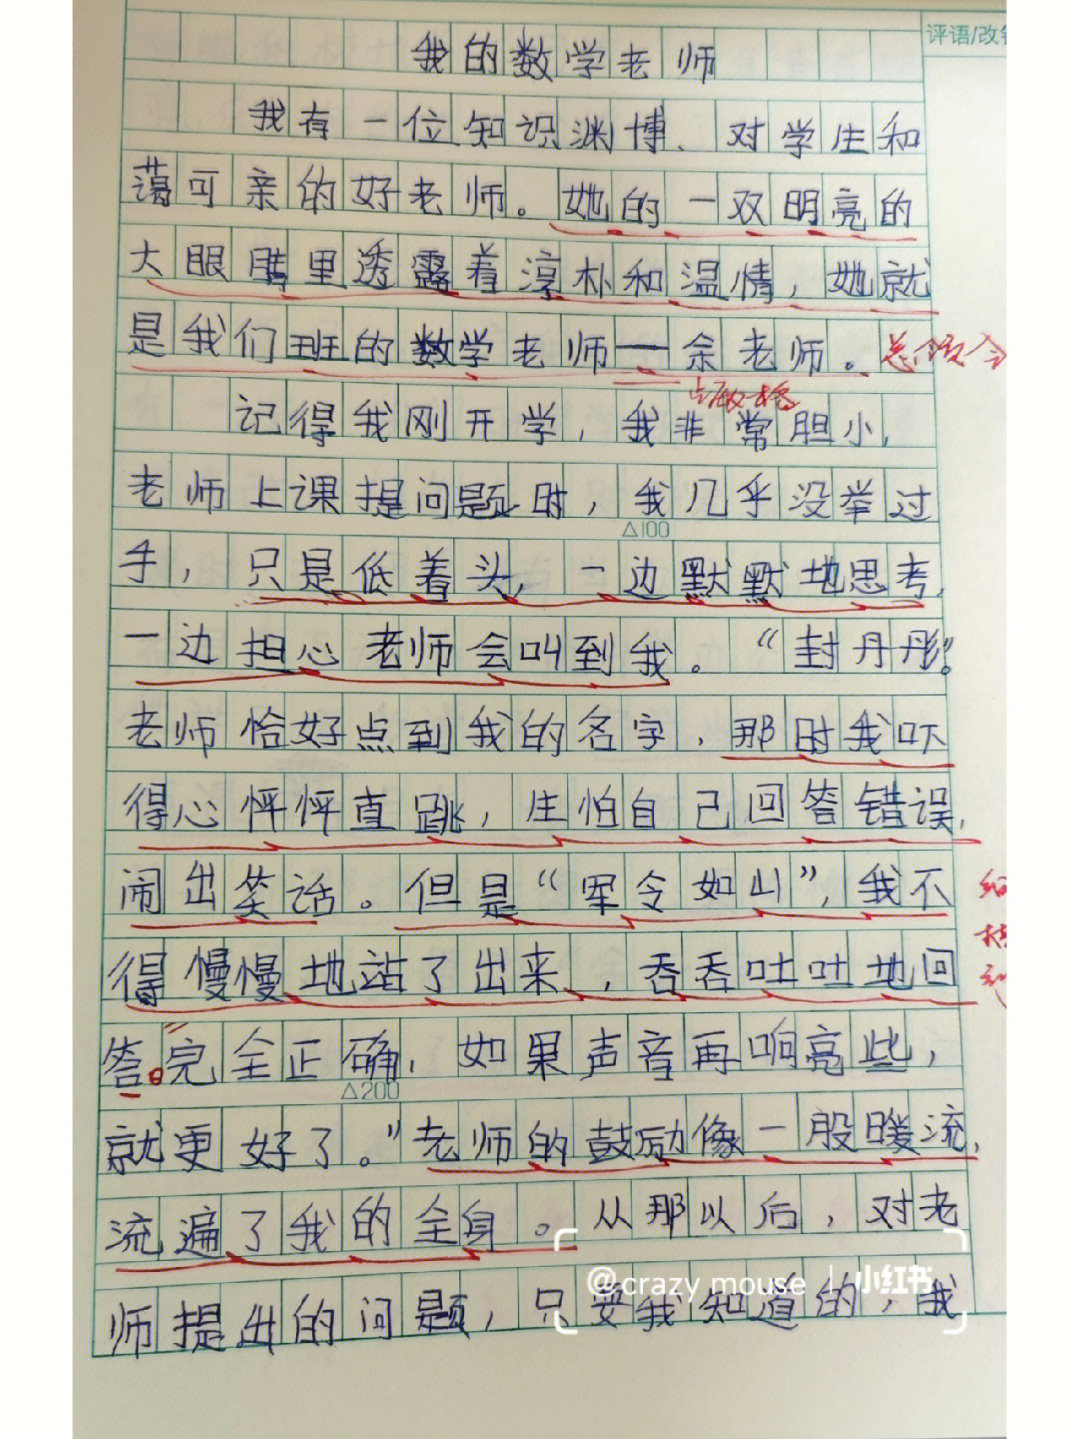 评语/改
我的数学老师
我有一位知识渊博、对学生和
蔼可亲的好老师。她的一双明亮的
大眼睛里透露着淳朴和温情，她就
是我们班的数学老师——余老师。
占两格
记得我刚开学，我非常胆小，
老师上课提问题时，我几乎没举过
△100
手，只是低着头，一边默默地思考，
一边担心老师会叫到我。“封丹彤”。
老师恰好点到我的名字，那时我吓
得心怦怦直跳，生怕自己回答错误，
闹出笑话。但是“军令如山”，我不
得慢慢地站了出来，吞吞吐吐地回
答。“完全正确，如果声音再响亮些，
△200
就更好了。”老师的鼓励像一股暖流，
流遍了我的全身。从那以后，对老
@crazy mouse 小红书
师提出的问题，只要我知道的，我